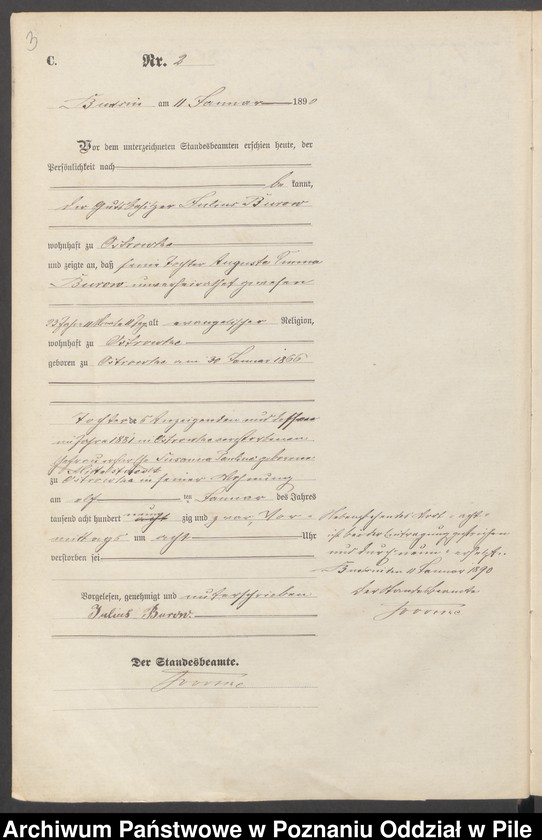 3
C. Nr. 2
am 11 Januar 1890
Vor dem unterzeichneten Standesbeamten erschien heute, der
Persönlichkeit nach
be kannt,
der Gutsbesitzer Julius Burow
wohnhaft zu Ostrowke
und zeigte an, daß seine Tochter Auguste Emma
Burow unverheirathet gewesen
23 Jahr 11 Monate alt evangelischer Religion,
wohnhaft zu Ostrowke
geboren zu Ostrowke am 30 Januar 1866
Tochter des Anzeigenden und dessen
im Jahre 1881 in Ostrowke verstorbenen
Ehefrau Susanna geborene
zu Ostrowke in seiner Wohnung
am ten Januar des Jahres
tausend acht hundert neun acht zig und zwar, Vor-
mittags um acht Uhr
verstorben sei
Vorgelesen, genehmigt und unterschrieben
Julius Burow.
Der Standesbeamte.
Nebenstehendes Wort "acht"
ist bei der Eintragung gestrichen
und durch "neun" ersetzt.
den 11 Januar 1890
Der Standesbeamte
Archiwum Państwowe w Poznaniu Oddział w Pile